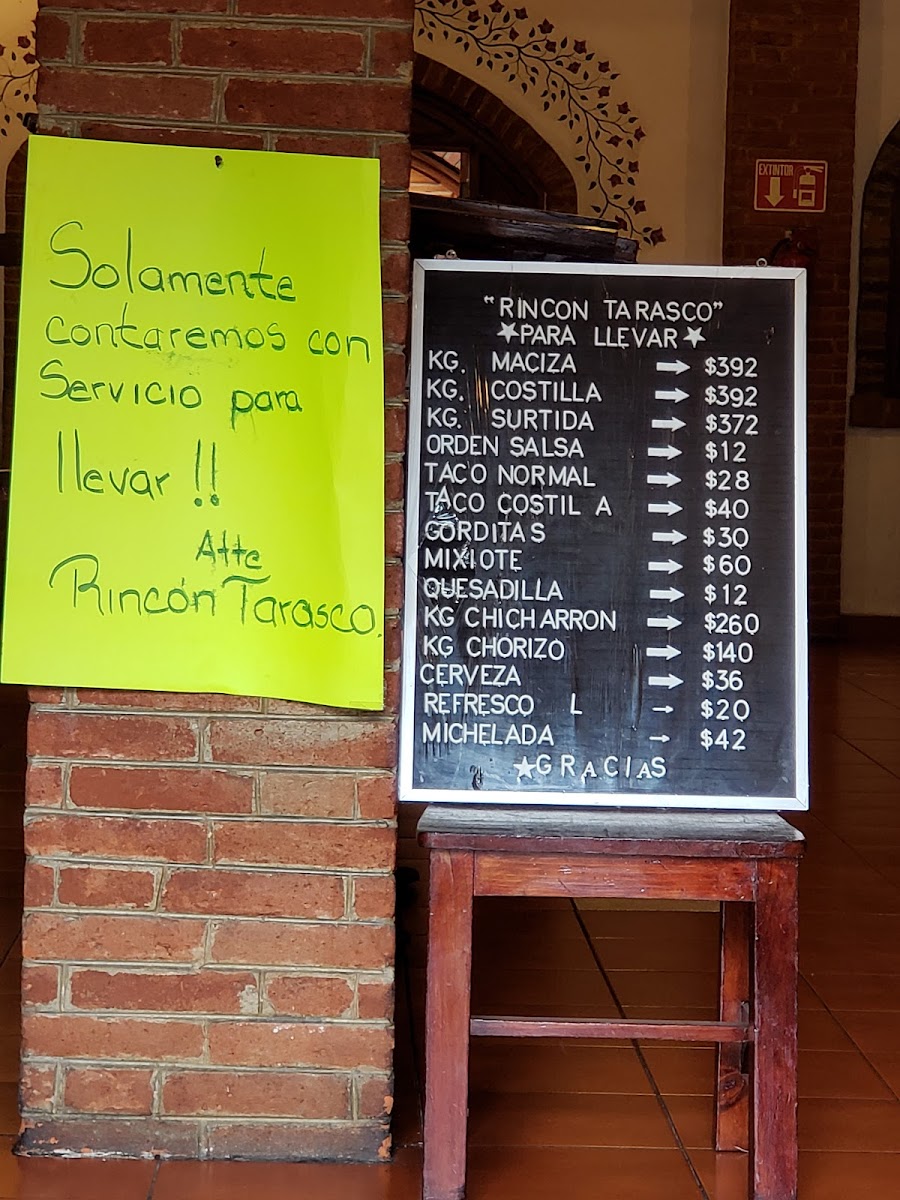 Solamente
contaremos con
Servicio para
llevar !!
Atte
Rincón Tarasco.
EXTINTOR
"RINCON TARASCO"
★PARA LLEVAR★
KG. MACIZA → $392
KG. COSTILLA → $392
KG. SURTIDA → $372
ORDEN SALSA → $12
TACO NORMAL → $28
TACO COSTIL A → $40
GORDITAS → $30
MIXIOTE → $60
QUESADILLA → $12
KG CHICHARRON → $260
KG CHORIZO → $140
CERVEZA → $36
REFRESCO L → $20
MICHELADA → $42
★GRACIAS